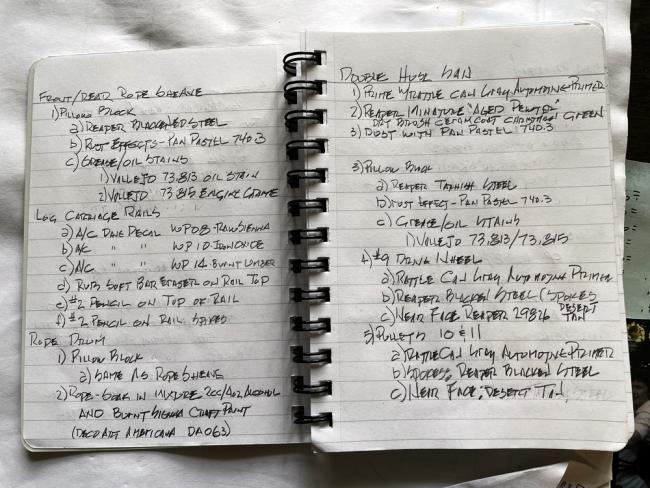 FRONT/REAR ROPE SHEAVE
1) PILLOW BLOCK
a) REAPER BLACKENED STEEL
b) RUST EFFECTS - PAN PASTEL 740.3
c) GREASE/OIL STAINS
1) VALLEJO 73.813 OIL STAIN
2) VALLEJO 73.815 ENGINE GRIME
LOG CARRIAGE RAILS
a) A/C DATE DECAL WP08-RAW SIENNA
b) A/C " " WP 10-IRON OXIDE
c) A/C " " WP 14-BURNT UMBER
d) RUB SOFT BAR ERASER ON RAIL TOP
e) #2 PENCIL ON TOP OF RAIL
f) #2 PENCIL ON RAIL SPIKES
ROPE DRUM
1) PILLOW BLOCK
a) SAME AS ROPE SHEAVE
2) ROPE - SOAK IN MIXTURE 2CC/4OZ ALCOHOL
AND BURNT SIENNA CRAFT PAINT
(DECO ART AMERICANA DA063)
DOUBLE HUSK SAW
1) PRIME W/RATTLE CAN GRAY AUTOMOTIVE PRIMER
2) REAPER MINIATURE "AGED PEWTER"
DRY BRUSH CERAMCOAT CHRISTMAS GREEN
3) DUST WITH PAN PASTEL 740.3
3) PILLOW BLOCK
a) REAPER TARNISH STEEL
b) RUST EFFECT - PAN PASTEL 740.3
c) GREASE/OIL STAINS
1) VALLEJO 73.813/73.815
4) #9 DRIVE WHEEL
a) RATTLE CAN GRAY AUTOMOTIVE PRIMER
b) REAPER BLACKEN STEEL (SPOKES
c) NEAR FACE REAPER 29826 DESERT TAN
5) PULLEYS 10 & 11
a) RATTLE CAN GRAY AUTOMOTIVE PRIMER
b) SPOKES, REAPER BLACKEN STEEL
c) NEAR FACE; DESERT TAN